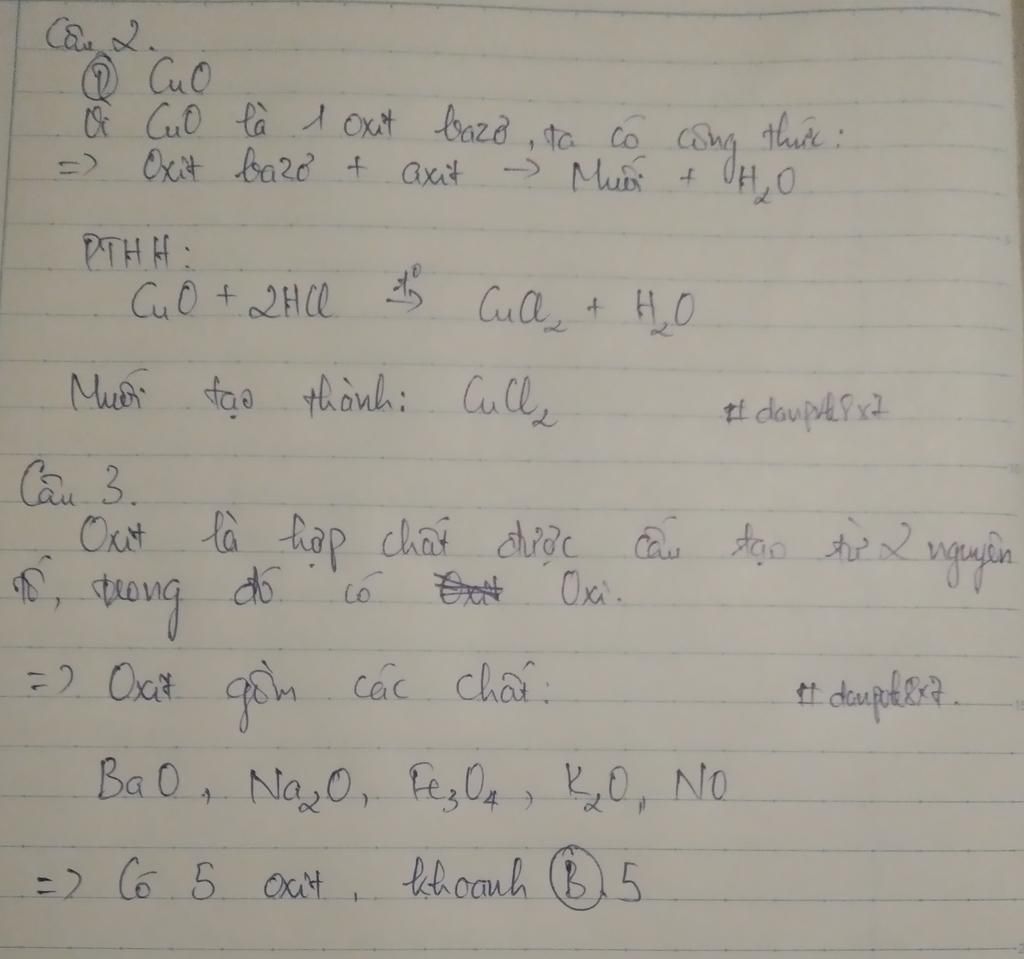 Câu 2.
Ⓓ CuO
Vì CuO là 1 oxit bazơ, ta có công thức:
=> Oxit bazơ + axit -> Muối + H₂O
PTHH:
CuO + 2HCl -t°-> CuCl₂ + H₂O
Muối tạo thành: CuCl₂
Câu 3.
Oxit là hợp chất được cấu tạo từ 2 nguyên
tố, trong đó có Oxi.
=> Oxit gồm các chất:
BaO, Na₂O, Fe₃O₄, K₂O, NO
=> Có 5 oxit, khoanh Ⓑ. 5